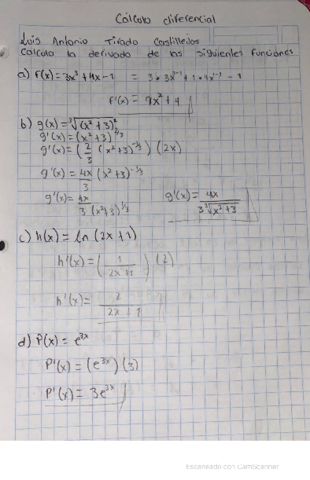 Cálculo diferencial
Luis Antonio Tirado Castillejos
Calcula la derivada de las siguientes funciones
a) f(x) = 3x³ + 4x - 1 = 3·3x³⁻¹ + 1·4x¹⁻¹ - 1
f'(x) = 9x² + 4
b) g(x) = ∛(x² + 3)²
g'(x) = (x² + 3)^2/3
g'(x) = (2/3 (x² + 3)^-1/3) (2x)
g'(x) = 4x/3 (x² + 3)^-1/3
g'(x) = 4x / 3 (x² + 3)^1/3 g'(x) = 4x / 3∛x² + 3
c) h(x) = ln (2x + 1)
h'(x) = (1 / 2x + 1) (2)
h'(x) = 2 / 2x + 1
d) P(x) = e^3x
P'(x) = (e^3x) (3)
P'(x) = 3e^3x
Escaneado con CamScanner